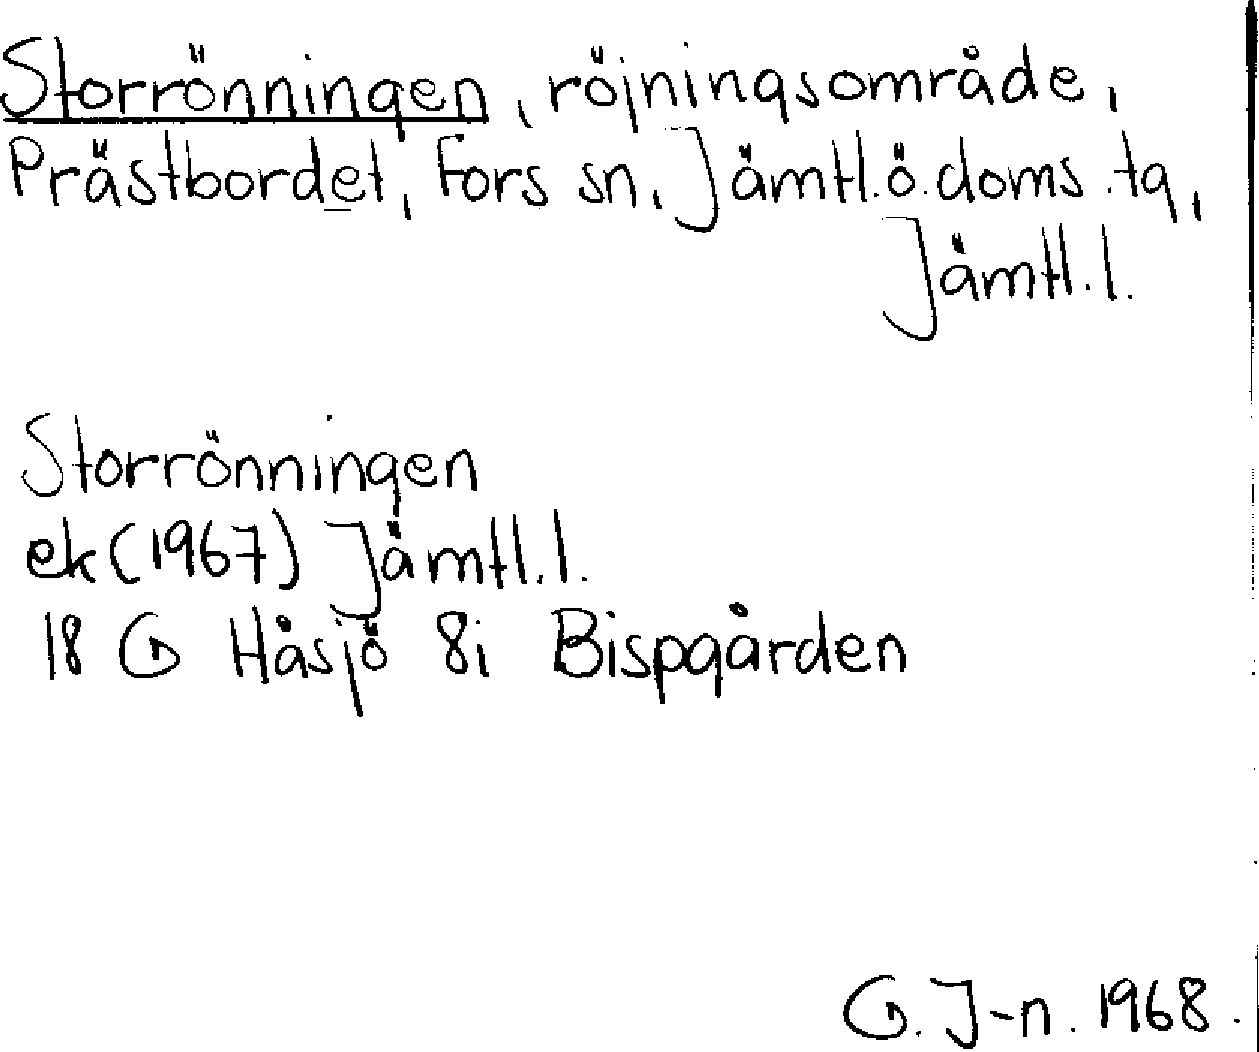 Storrönningen, röjningsområde,
Prästbordet, Fors sn, Jämtl.ö.doms.tg,
Jämtl.l.
Storrönningen
ek (1967) Jämtl.l.
18 G Håsjö 8i Bispgården
G. J-n. 1968.